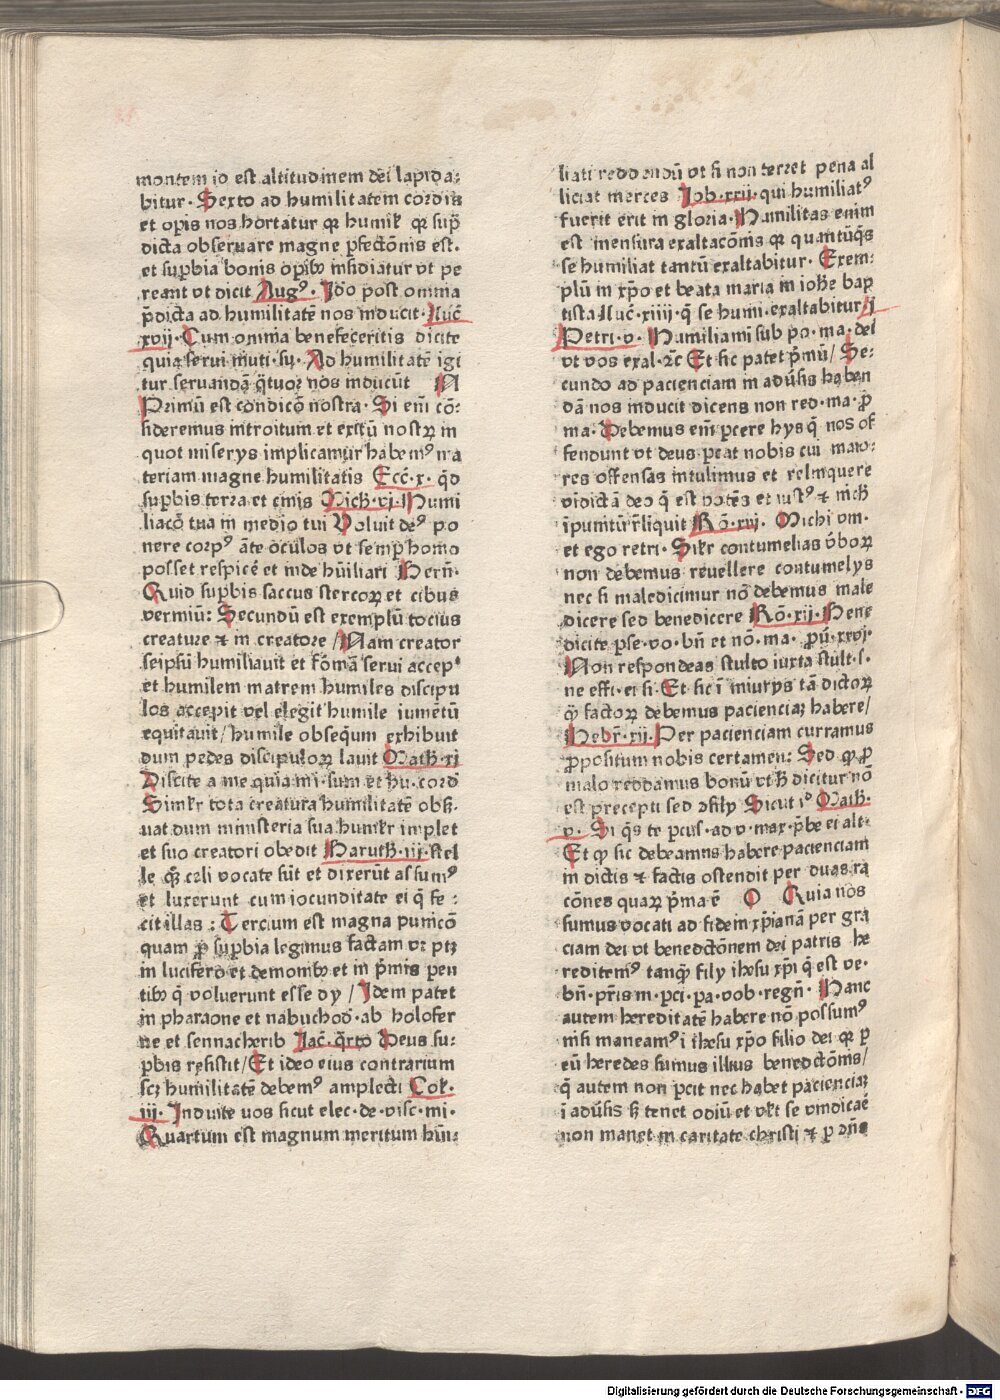 montem id est altitudinem dei lapida⸗
bitur· Sexto ad humilitatem cordis
et oꝑis nos hortatur qꝛ humiłr qꝛ suꝓ
dicta obseruare magne ꝑfectōnis est.
et suꝑbia bonis oꝑibꝫ insidiatur vt pe
reant vt dicit Augꝰ· Ido post omnia
p̄dicta ad humilitatē nos inducit· Luc̄
xvij· Cum omnia benefeceritis dicite
quia serui inuti· su· Ad humilitatē igi
tur seruandā q̄tuor nos inducūt
Primū est condicō nostra· Si em̄ cō⸗
sideremus introitum et exitū nostꝝ in
quot miserijs implicamur habemꝰ ma
teriam magne humilitatis Ecc̄· x· q̄d
suꝑbis terra et cinis Mich̄· vi· Humi
liacō tua in medio tui Voluit deꝰ po
nere corpꝰ āte oculos vt semꝑ homo
posset respicē et inde hūiliari Bern̄·
Quid suꝑbis saccus stercoꝝ et cibus
vermiū: Secundū est exemplū tocius
creature ⁊ in creatore / Nam creator
seipsū humiliauit et formā serui accepᵗ
et humilem matrem humiles discipu
los accepit vel elegit humile iumētū
equitauit / humile obsequm exhibuit
dum pedes discipuloꝝ lauit Math̄· xi
Discite a me quia mi· sum et hu· cord̄
Similr tota creatura humilitatē obs̄⸗
uat dum ministeria sua humilr implet
et suo creatori obedit Baruth̄· iij· stel
le q̄ꝫ celi vocate sūt et dixerūt assumꝰ
et luxerunt cum iocunditate ei q̄ fe⸗
cit illas: Tercium est magna punicō
quam ꝓ suꝑbia legimus factam vꝫ ptꝫ
in lucifero et demonibꝫ et in p̄mis pen
tibꝫ q̄ voluerunt esse dij / Idem patet
in pharaone et nabuchod̄· ab holofer
ne et sennacherib Iac̄· q̄rto Deus su⸗
ꝑbis resistit / Et ideo eius contrarium
scꝫ humilitatē debemꝰ amplecti Col·
iij· Induite uos sicut elec· de· visc· mi·
Quartum est magnum meritum hūi⸗
liati reddendū vt si non terret pena al
liciat merces Iob· xxij· qui humiliatꝰ
fuerit erit in gloria· Humilitas enim
est mensura exaltacōnis qꝛ quantūq̄s
se humiliat tantū exaltabitur· Exem⸗
plū in xp̄o et beata maria in ioh̄e bap
tista Luc̄· xiiij· q̄ se humi· exaltabitur i
Petri· v· Humiliamini sub po· ma· dei
vt vos exal· ⁊c Et sic patet p̄mū / Se⸗
cundo ad pacienciam in adūsis haben
dā nos inducit dicens non red· ma· ꝓ
ma· Debemus em̄ ꝑcere hijs q̄ nos of
fendunt vt deus ꝑcat nobis cui maio⸗
res offensas intulimus et relinquere
vidictā deo q̄ est potēs et iustꝰ ⁊ nich̄
īpunitū r̄liquit Rō· xij· Michi vin·
et ego retri· Silr contumelias v̄boꝝ
non debemus reuellere contumelijs
nec si maledicimur nō debemus male
dicere sed benedicere Rō· xij· Bene
dicite ꝑse· vo· bn̄ et nō· ma· ꝓū· xxvi·
Non respondeas stulto iuxta stult· s·
ne effi· ei si· Et sic ī iniurijs tā dictoꝝ
q̄ꝫ factoꝝ debemus pacienciaꝫ habere /
Hebr̄· xij· Per pacienciam curramus
ꝓpositum nobis certamen: Sed qꝫ ꝓ
malo reddamus bonū vt h̄ dicitur nō
est precepti sed ꝯsilij Sicut iᵈ Math̄·
v· Si q̄s te ꝑcus· ad v· max· p̄be ei alt·
Et qꝫ sic debeamus habere pacienciam
in dictis ⁊ factis ostendit per duas ra
cōnes quaꝝ p̄ma ē O Quia nos
sumus vocati ad fidem xp̄ianā per gra
ciam dei vt benedctōnem dei patris he
reditemꝰ tanq̄ filij ih̄esu xp̄i q̄ est ve·
bn̄· pr̄is m· ꝑci· pa· vob· regn̄· Hanc
autem hereditatē habere nō possumꝰ
nisi maneamꝰ i ih̄esu xp̄o filio dei qꝛ ꝑ
eū heredes sumus illius benedctōnis /
q̄ autem non ꝑcit nec habet pacienciaꝫ
i adūsis s̄ tenet odiū et vłt se vindicaē
non manet in caritate christi ⁊ ꝑ 

Digitalisierung gefördert durch die Deutsche Forschungsgemeinschaft - DFG